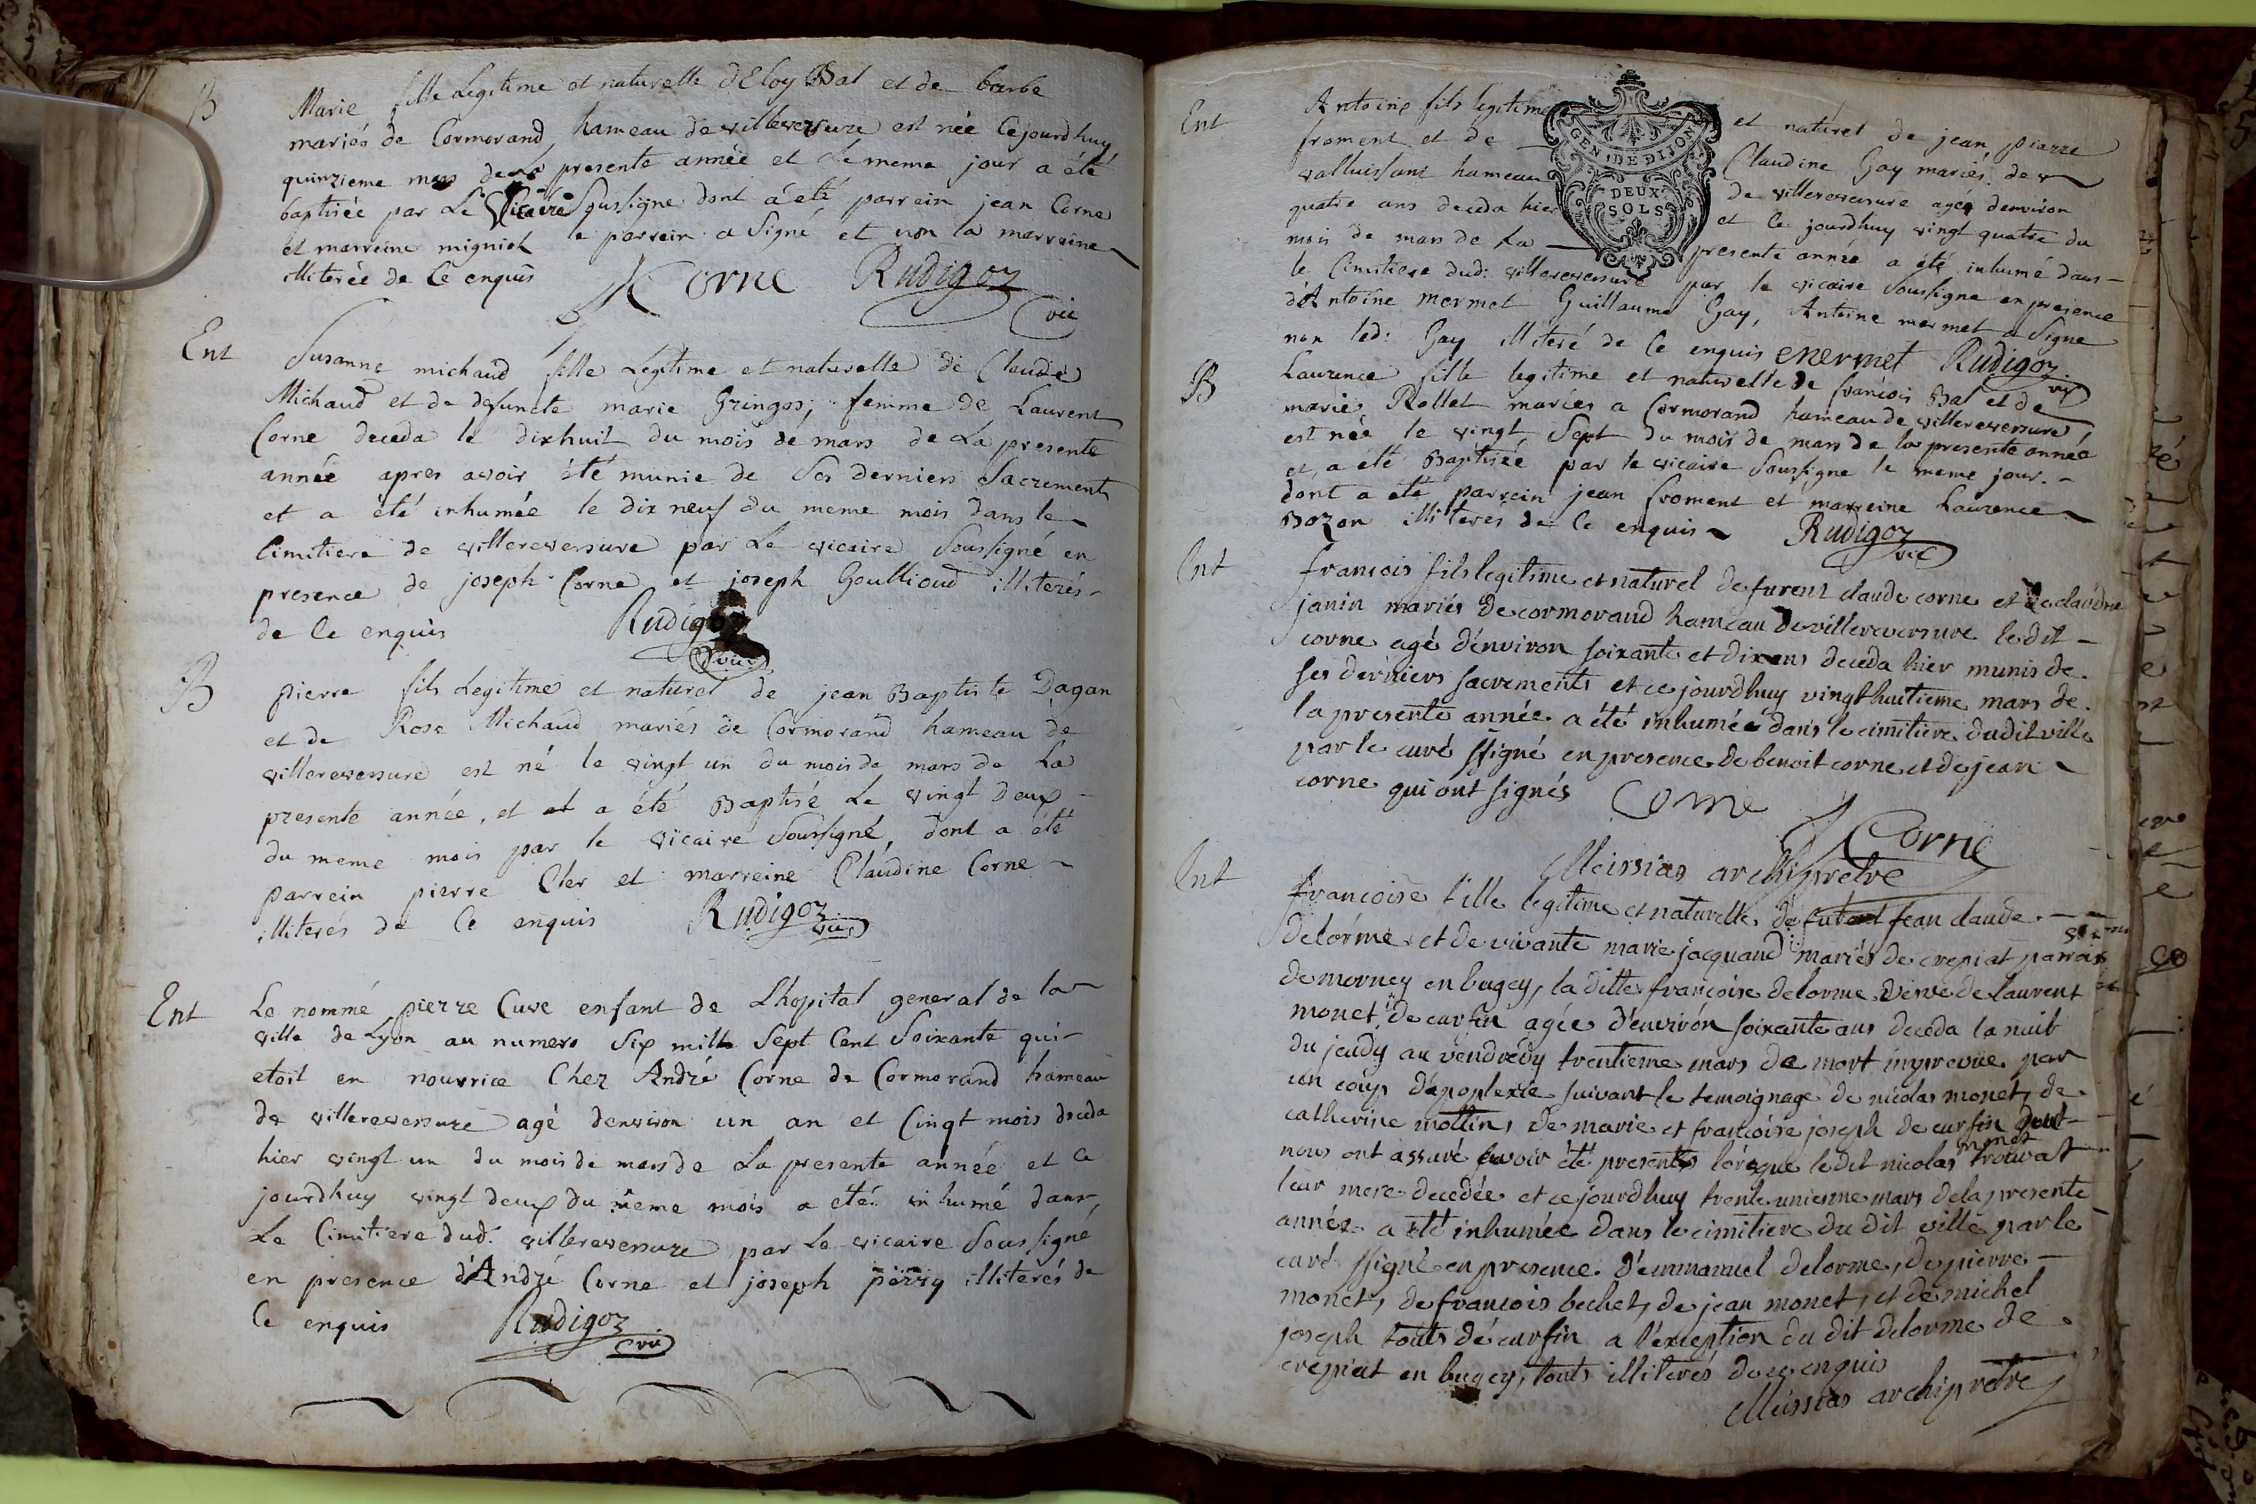 B
Marie fille Legitime et naturelle d'Eloy Bal et de barbe
mariés de Cormorand hameau de villereversure est née Cejourdhuy
quinzieme mars de La presente année et Le meme jour a été
baptisée par Le Vicaire Soussigne dont a été parrein jean Corne
et marreine migniet le parrein a Signé et non la marreine
illiterée de Ce enquis Corne Rudigoz
vic
Ent
Susanne michaud fille Legitime et naturelle de Claude
Michaud et de defuncte marie Gringoz, femme de Laurent
Corne deceda le dixhuit du mois de mars de La presente
année apres avoir été munie de Ses derniers Sacrements
et a été inhumée le dix neuf du meme mois dans le
Cimitiere de villereversure par Le vicaire Soussigné en
presence de joseph Corne et joseph Goullioud illiterés
de Ce enquis Rudigoz
vic
B
pierre fils Legitime et naturel de jean Baptiste Dagan
et de Rose Michaud mariés de Cormorand hameau de
villereversure est né le vingt un du mois de mars de La
presente année, et et a été Baptisé Le vingt deux
du meme mois par le vicaire Soussigné, dont a été
parrein pierre Cler et marreine Claudine Corne
illiterés de Ce enquis Rudigoz
vic
Ent
Le nommé pierre Cuve enfant de Lhopital general de la
ville de Lyon au numero Six mille Sept Cent Soixante qui
etoit en nourrice Chez André Corne de Cormorand hameau
de villereversure agé denviron un an et Cinqt mois deceda
hier vingt un du mois de mars de La presente année et Ce
jourdhuy vingt deux du meme mois a été inhumé dans
Le Cimitiere dud: villereversure par Le vicaire Soussigné
en presence d'André Corne et joseph perry illiterés de
Ce enquis Rudigoz
vic
Ent
Antoine fils legitime et naturel de jean pierre
froment et de Claudine Gay mariés de
valluissant hameau de villereversure agé denviron
quatre ans deceda hier et Ce jourdhuy vingt quatre du
mois de mars de La presente année a été inhumé dans
le Cimitiere dud: villereversure par le vicaire Soussigne en presence
d'Antoine mermet Guillaume Gay, Antoine mermet a Signe
non led: Gay illiteré de Ce enquis mermet Rudigoz
vic
GEN. DE DIJON
DEUX
SOLS
B
Laurence fille legitime et naturelle de francois Bal et de
marie Rollet mariés a Cormorand hameau de villereversure
est née le vingt Sept du mois de mars de la presente année
et a été Baptisée par le vicaire Soussigne le meme jour.
dont a été parrein jean froment et marreine Laurence
Bozon illiterés de Ce enquis Rudigoz
vic
Ent
francois fils legitime et naturel de furent claude corne et de claudine
janin mariés de cormorand hameau de villereversure le dit
corne agé d'environ soixante et dix ans deceda hier munis de
ses derniers sacrements et ce jourdhuy vingt huitieme mars de
la presente année a été inhumée dans le cimitiere dudit ville
par le curé ssigné en presence de benoit corne et de jean
corne qui ont signés Corne
Corne
Meissias archipretre
Ent
francoise fille legitime et naturelle de furent jean claude
delorme et de vivante marie jacquand mariés de crepiat
de morney en bugey, la ditte francoise delorme veuve de laurent
monet de curfin agée d'environ soixante ans deceda la nuit
du jeudy au vendredy trentieme mars de mort imprevue par
un coup d'apoplexie suivant le temoignage de nicolas monet, de
catherine mottin, de marie et francoise joseph de curfin dont
nous ont assuré avoir été presents lorsque le dit nicolas monet trouvat
leur mere decedée et ce jourdhuy trente unieme mars de la presente
année a été inhumée dans le cimitiere du dit ville par le
curé ssigné en presence d'emmanuel delorme, de pierre
monet, de francois bechet, de jean monet, et de michel
joseph touts de curfin a l'exception du dit delorme de
crepiat en bugey, touts illiterés de ce enquis
Meissias archipretre